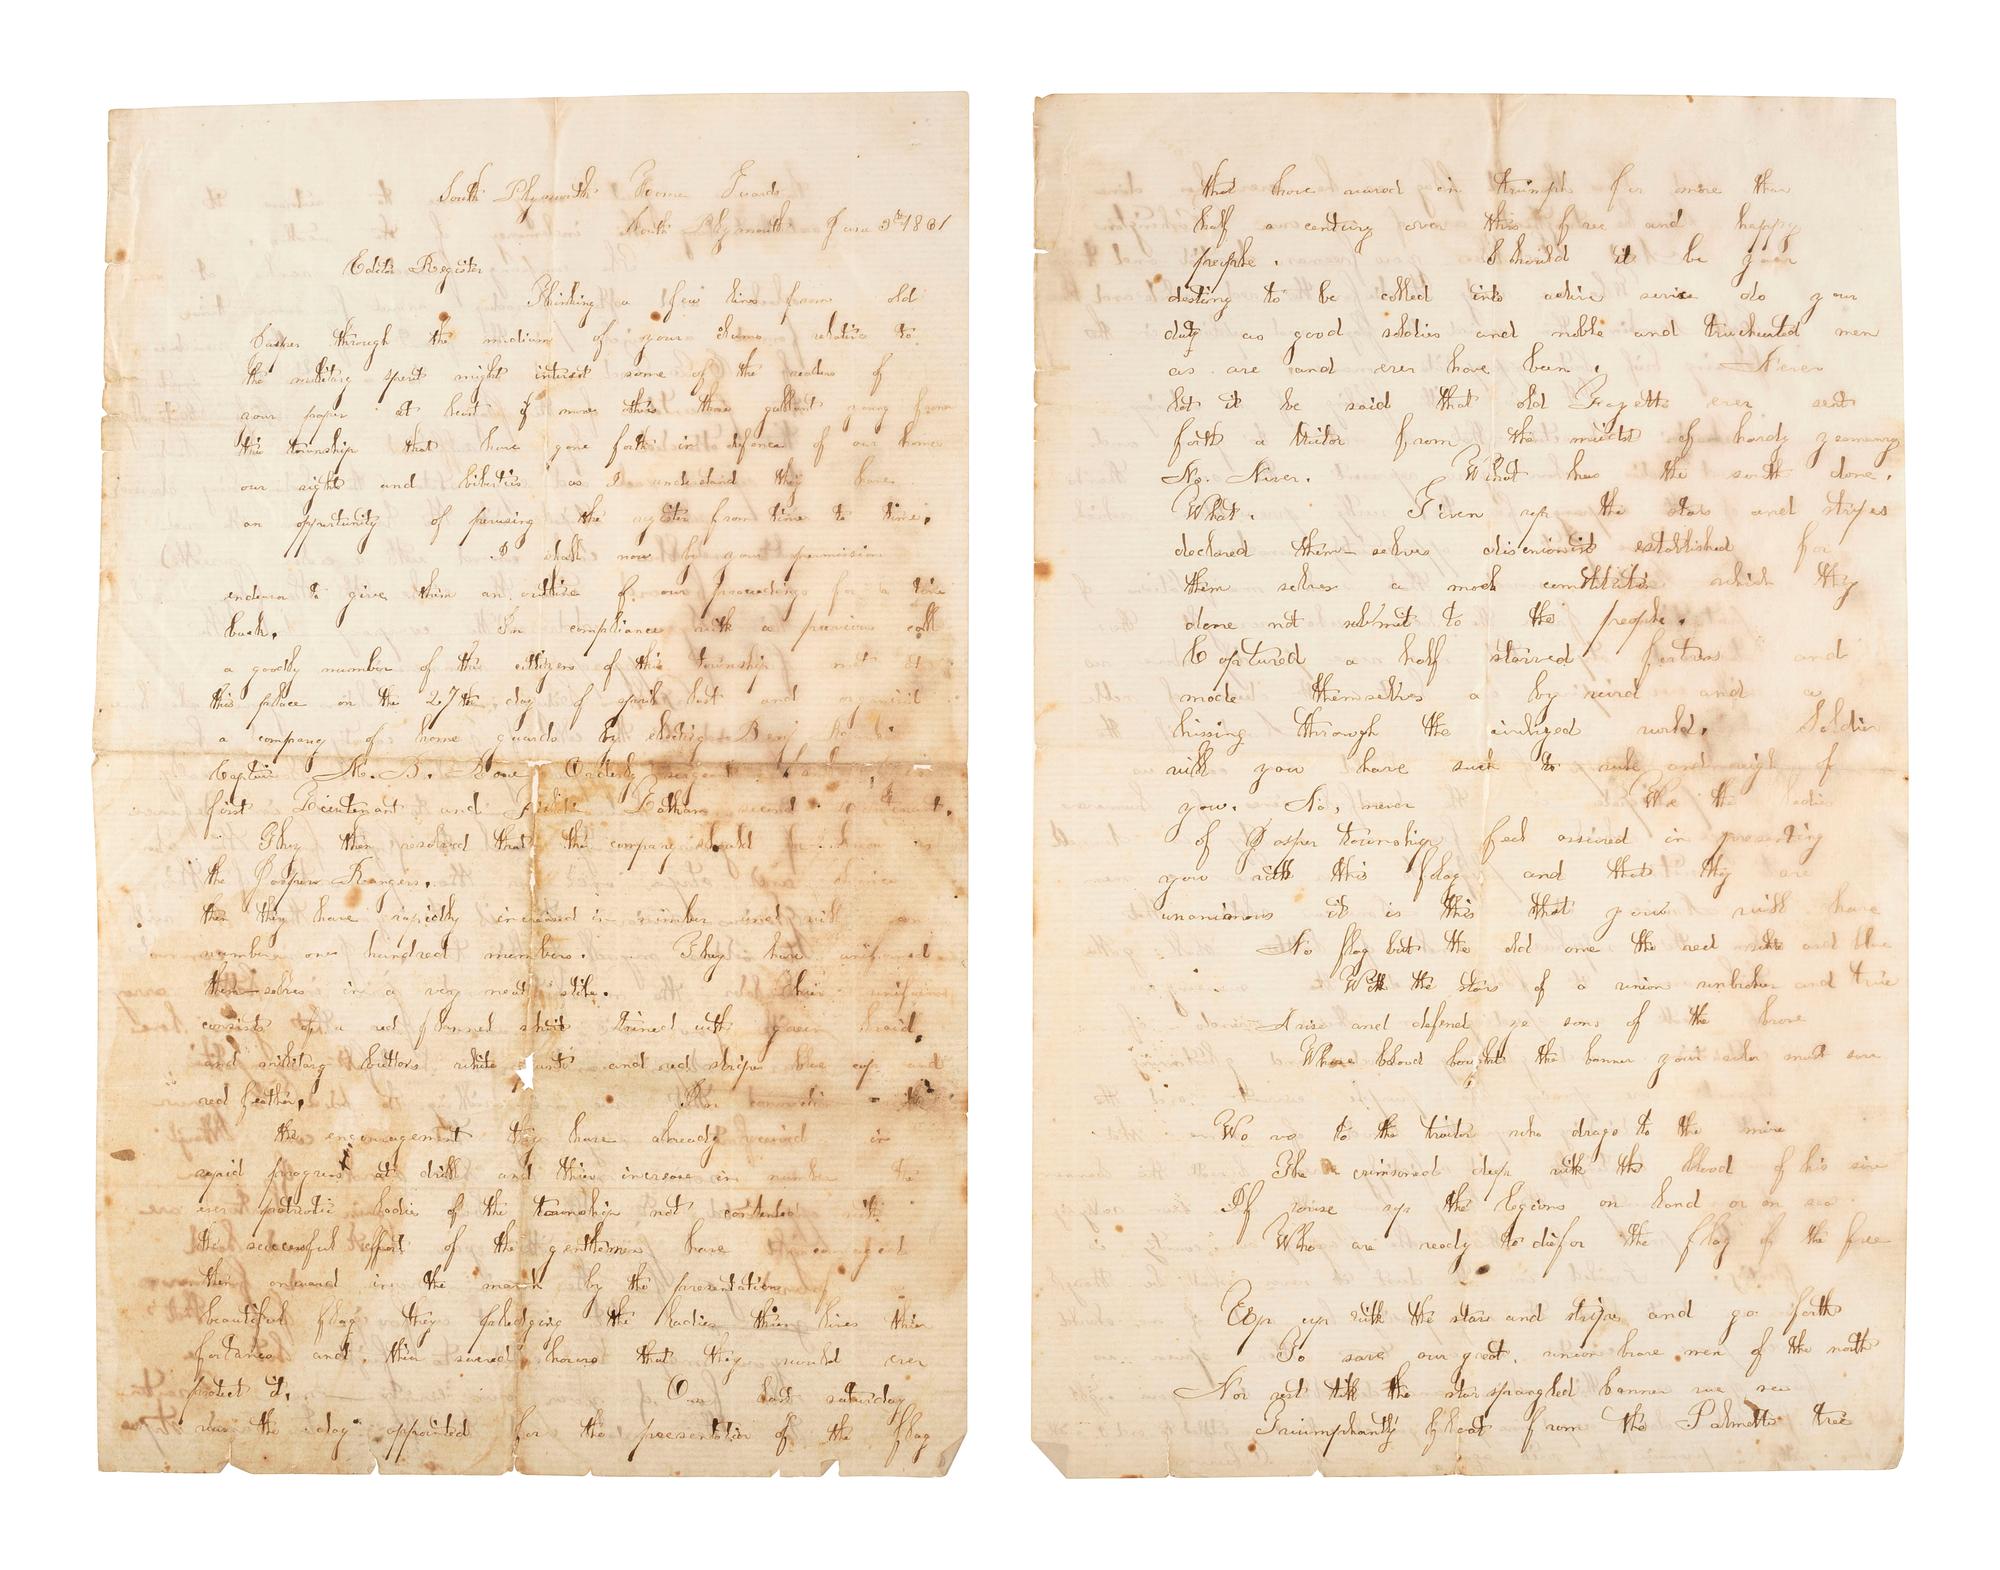 South Plymouth Home Guards
South Plymouth June 3th 1861
Editor Register
Thinking a few lines from old
Jasper through the medium of your colums relative to
the military spirit might interest some of the readers of
your paper at least if none others those gallant young from
this township that have gone forth in defence of our home
our rights and liberties as I understand they have
an opportunity of perusing the register from time to time.
I shall now by your permission
endevor to give them an outline of our proceedings for a time
back. In compliance with a previous call
a goodly number of the cittizens of this township met at
this place on the 27th day of april last and organized
a company of home guards by electing Benj
Captain A. B. Orderly sergent
first Lieutenant and Latham second
They then resolved that the company should be known as
the Jasper Rangers.
then they have rapidly increased in number until
number one hundred members. They have uniformed
them-selves in a very neat stile. Thier uniform
consists of a red flannel shirt trimed with green braid
and military buttons white pants and red stripe blue cap and
red feather. In connection with
the encouragement they have already received in
rapid progress at drill and thier increase in number the
ever patriotic ladies of the township not contented with
the successful effort of the gentlemen have encouraged
them onward in the march by the presentation
beautiful flag they pledging the ladies thier lives thier
fortunes and thier sacred honors that they would ever
protect it. On last saturday
was the day appointed for the presentation of the flag
that have waved in triumph for more than
half a century over this free and happy
people. Should it be your
destiny to be called into active service do your
duty as good soldies and noble and truehearted men
as are and ever have been. Never
let it be said that old Fayette ever sent
forth a traitor from the midst of hardy yeomanry
No. Never. What has the south done.
What. Given up the stars and stripes
declared them-selves disunionist established for
them selves a mock constitution which they
dare not submit to the people.
Captured a half starved fortress and
made themselves a by word and a
hissing through the civilized world. Soldier
will you have such to rule and reign of
you. No, never We the ladies
of Jasper township feel assured in presenting
you with this flag and that they are
unanimous it is this that you will have
No flag but the old one the red white and blue
With the stars of a union unbroken and true
Arise and defend ye sons of the brave
Whose blood bought the banner your valor must save
Wo wo to the traitor who drags to the mire
The crimsoned deep with the blood of his sire
If rouse up the legions on land or on sea
Who are ready to die for the flag of the free
Up up with the stars and stripes and go forth
To save our great union brave men of the north
Nor rest till the star spangled banner we see
Triumphantly float from the Palmetto tree